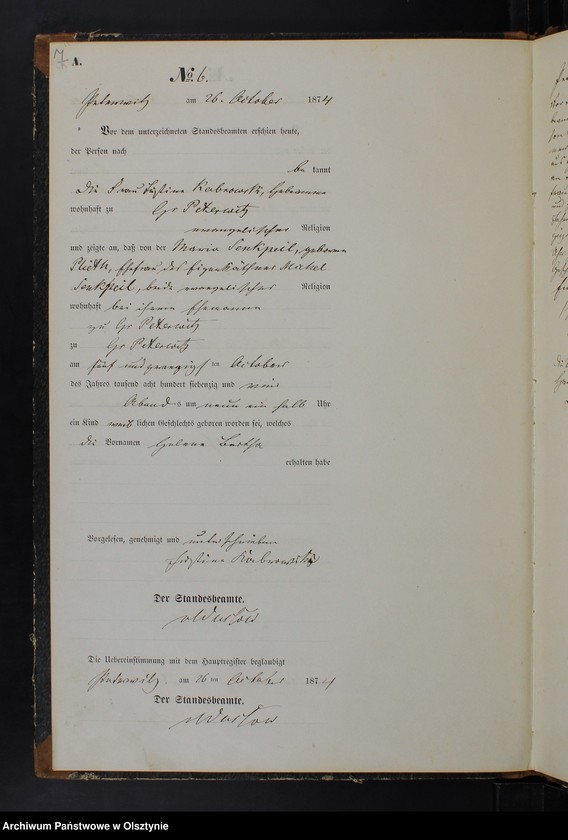 7 A.
No. 6.
am 26. October 1874
Vor dem unterzeichneten Standesbeamten erschien heute,
der Person nach
be kannt
die Frau Justine Kabrowski, Hebamme
wohnhaft zu Gr Peterwitz
evangelischer Religion
und zeigte an, daß von der Maria Senkpeil, geborenen
Plath, Ehefrau des Eigenkäthners Michel
Senkpeil, beide evangelischer Religion
wohnhaft bei ihrem Ehemanne
zu Gr Peterwitz
zu Gr Peterwitz
am fünf und zwanzigsten October
des Jahres tausend acht hundert siebenzig und vier
Abends um neun ein halb Uhr
ein Kind weiblichen Geschlechts geboren worden sei, welches
die Vornamen Helene Bertha
erhalten habe
Vorgelesen, genehmigt und unterschrieben
Justine Kabrowski
Der Standesbeamte.
Die Uebereinstimmung mit dem Hauptregister beglaubigt
am 26 ten October 1874
Der Standesbeamte.
Archiwum Państwowe w Olsztynie